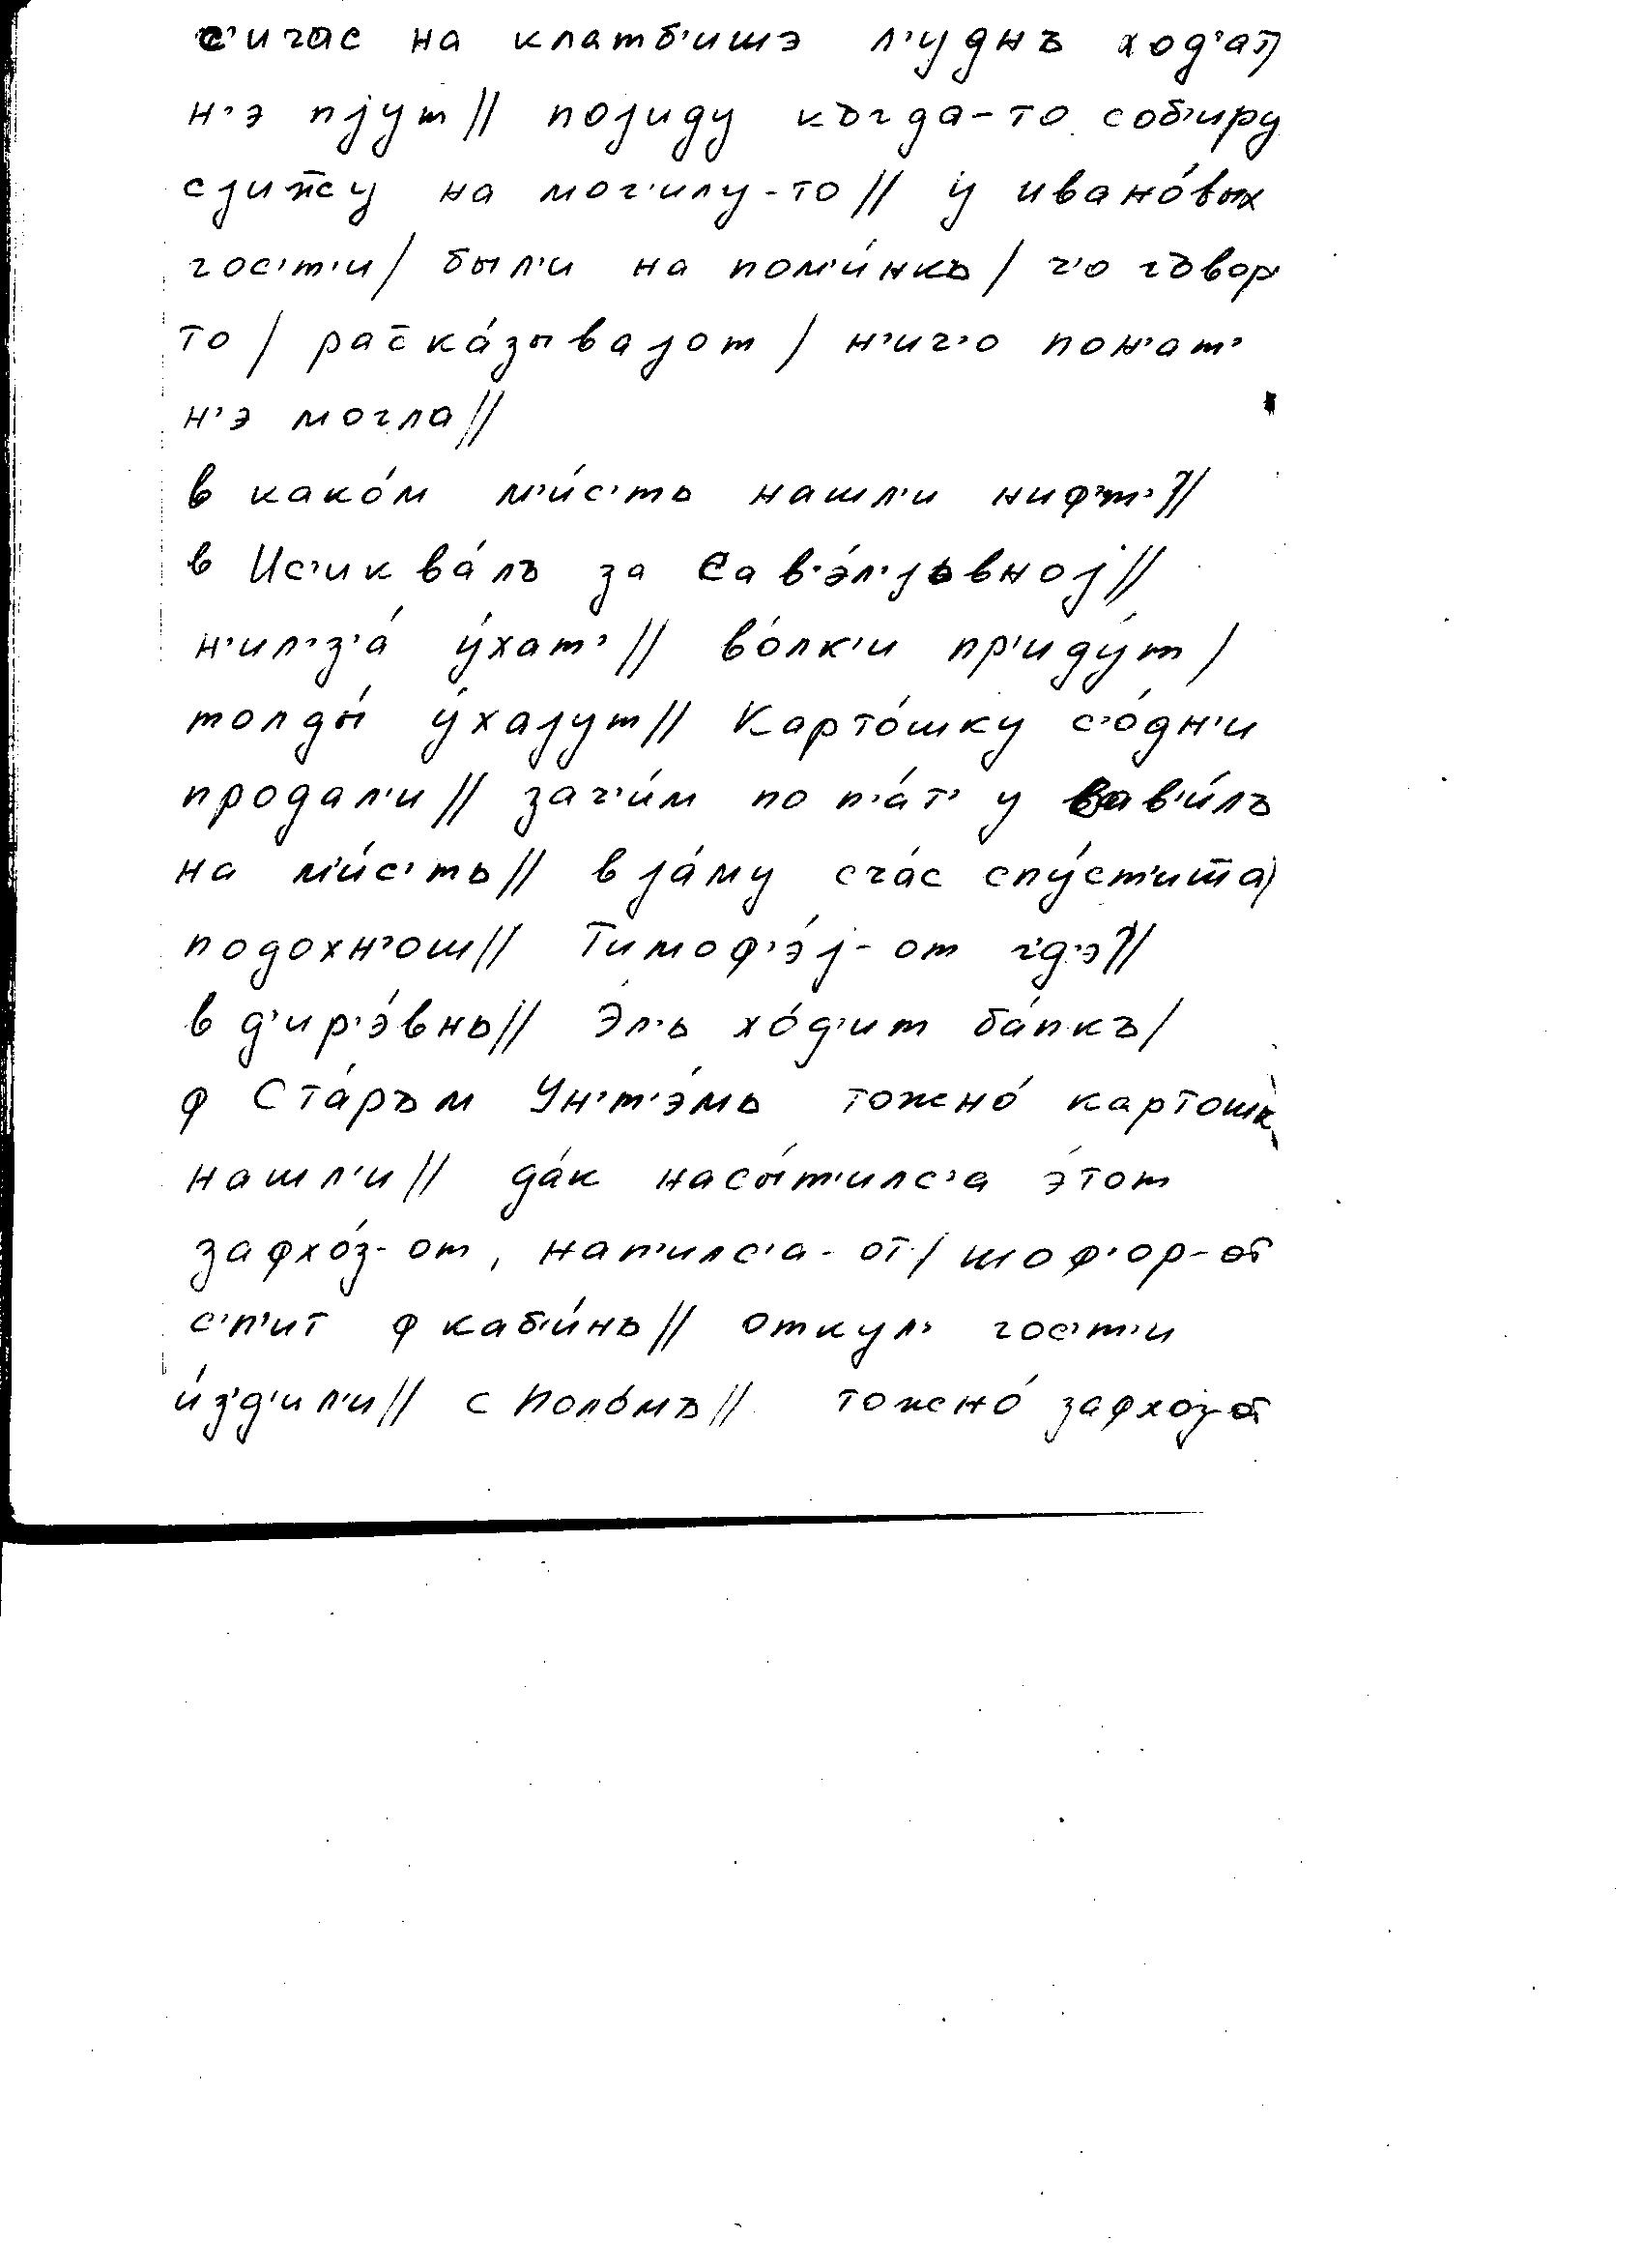 с'ичас на клатб'ишэ л'уднъ ход'ат
н'э пjут // поjиду къгда-то соб'иру
сjиж̅су на мог'илу-то // у ивано́вых
гос'т'и / был'и на пом'и́нкъ / ч'о гъвор
то / рас̅ка́зываjот / н'ич'о пон'ат'
н'э могла //
в како́м м'и́с'ть нашл'и ниф'т'? //
в Ис'иква́лъ за Сав'э́л'jьвноj //
н'ил'з'а́ у́хат' // во́лк'и пр'иду́т /
толды́ у́хаjут // Карто́шку с'о́дн'и
продал'и // зач'и́м по п'а́т' у Вав'и́лъ
на м'и́с'ть // в jа́му сча́с спу́ст'ит̅а /
подохн'ош // Тимоф'э́j-от г'д'э? //
в д'ир'э́внь // Э́л'ь хо́д'ит ба́пкъ /
ф Ста́ръм Ун'т'э́мь тожно́ картошк
нашл'и // да́к насы́т'илс'а э́тот
зафхо́з-от, нап'илс'а-от / шоф'ор-от
с'п'ит ф каб'и́нь // откул' гос'т'и
и́з'д'ил'и // с Поло́мъ // тожно́ зафхоз-от